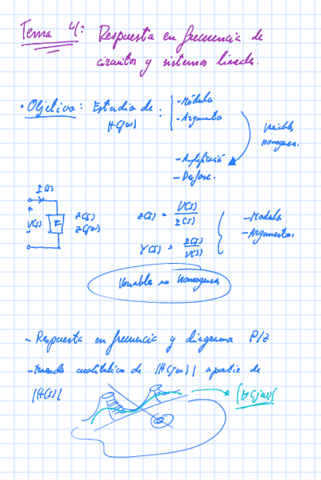 Tema 4: Respuesta en frecuencia de
circuitos y sistemas lineales.
• Objetivo: Estudio de :
H(jω)
- Módulo
- Argumento
Variables
homogeneas.
- Amplificación
- Desfase.
I(s)
+
V(s)
-
Z(s)
Z(jω)
Z(s) = V(s)
I(s)
Y(s) = I(s)
V(s)
- Modulo
- Argumentos
Variables no homogeneas
- Respuesta en frecuencia y diagrama P/Z
- cualitativo de |H(jω)| a partir de
|H(s)|
|H(jω)|